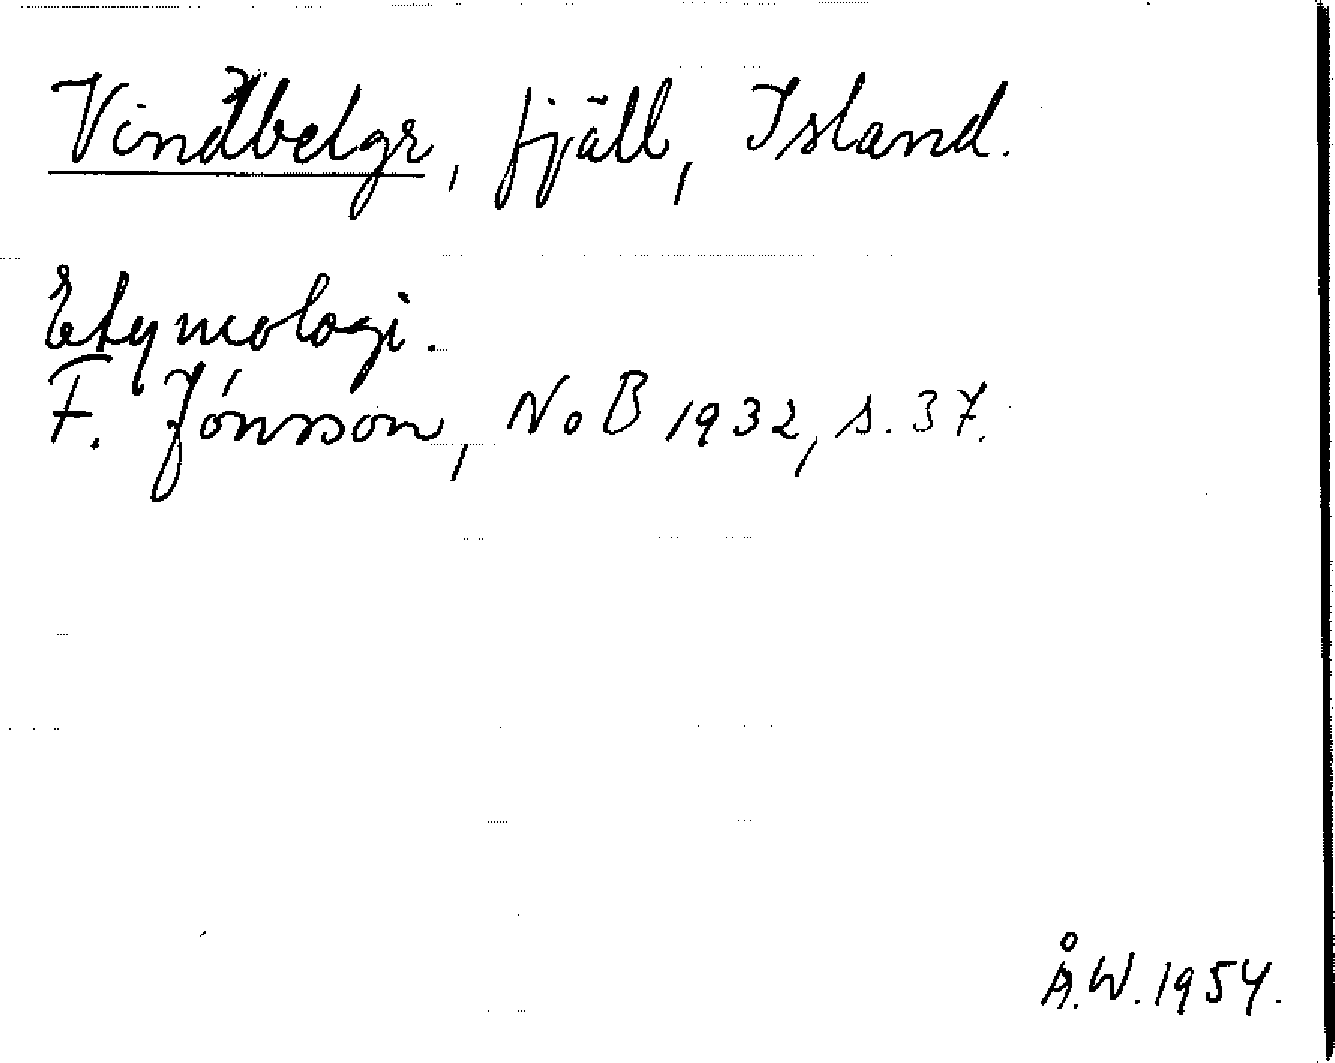 Vindbelgr, fjäll, Island.
Etymologi.
F. Jónsson, NoB 1932, s. 37.
Å.W. 1954.